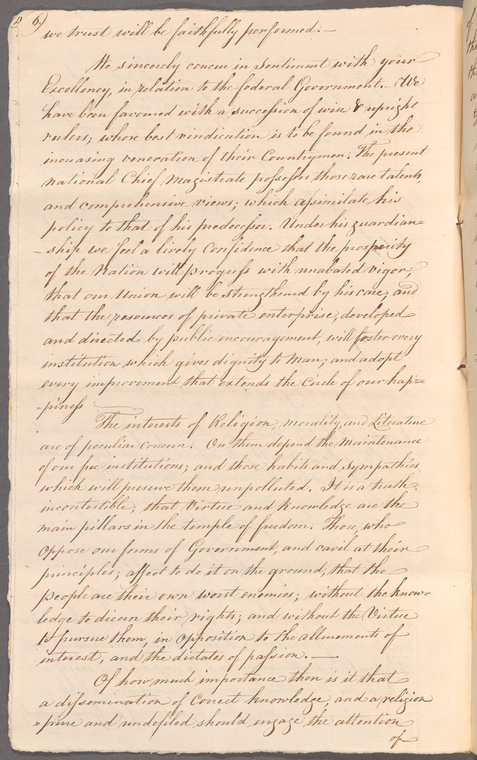 6)
we trust will be faithfully performed.—
We sincerely concur in sentiment with your
Excellency, in relation to the federal Government. We
have been favoured with a succession of wise & upright
rulers; whose best vindication is to be found in the
increasing veneration of their Countrymen. The present
national Chief Magistrate possesses those rare talents
and comprehensive views; which assimilate his
policy to that of his predecessor. Under his guardian=
ship we feel a lively Confidence that the prosperity
of the Nation will progress with unabated vigor;
that our Union will be strengthened by his care; and
that the resources of private enterprise, developed
and directed by public encouragement, will foster every
institution which gives dignity to Man; and adopt
every improvement that extends the Circle of our hap=
=piness
The interests of Religion, morality, and Literature
are of peculiar concern. On them depend the Maintenance
of our free institutions; and those habits and sympathies,
which will preserve them unpolluted. It is a truth
incontestible, that Virtue and knowledge are the
main pillars in the temple of freedom. Those, who
oppose our forms of Government, and cavil at their
principles; affect to do it on the ground, that the
people are their own worst enemies; without the know=
ledge to discern their rights; and without the Virtue
to pursue them, in opposition to the allurements of
interest, and the dictates of passion.—
Of how much importance then is it that
a dissemination of Correct knowledge, and a religion
"pure and undefiled should engage the attention
of